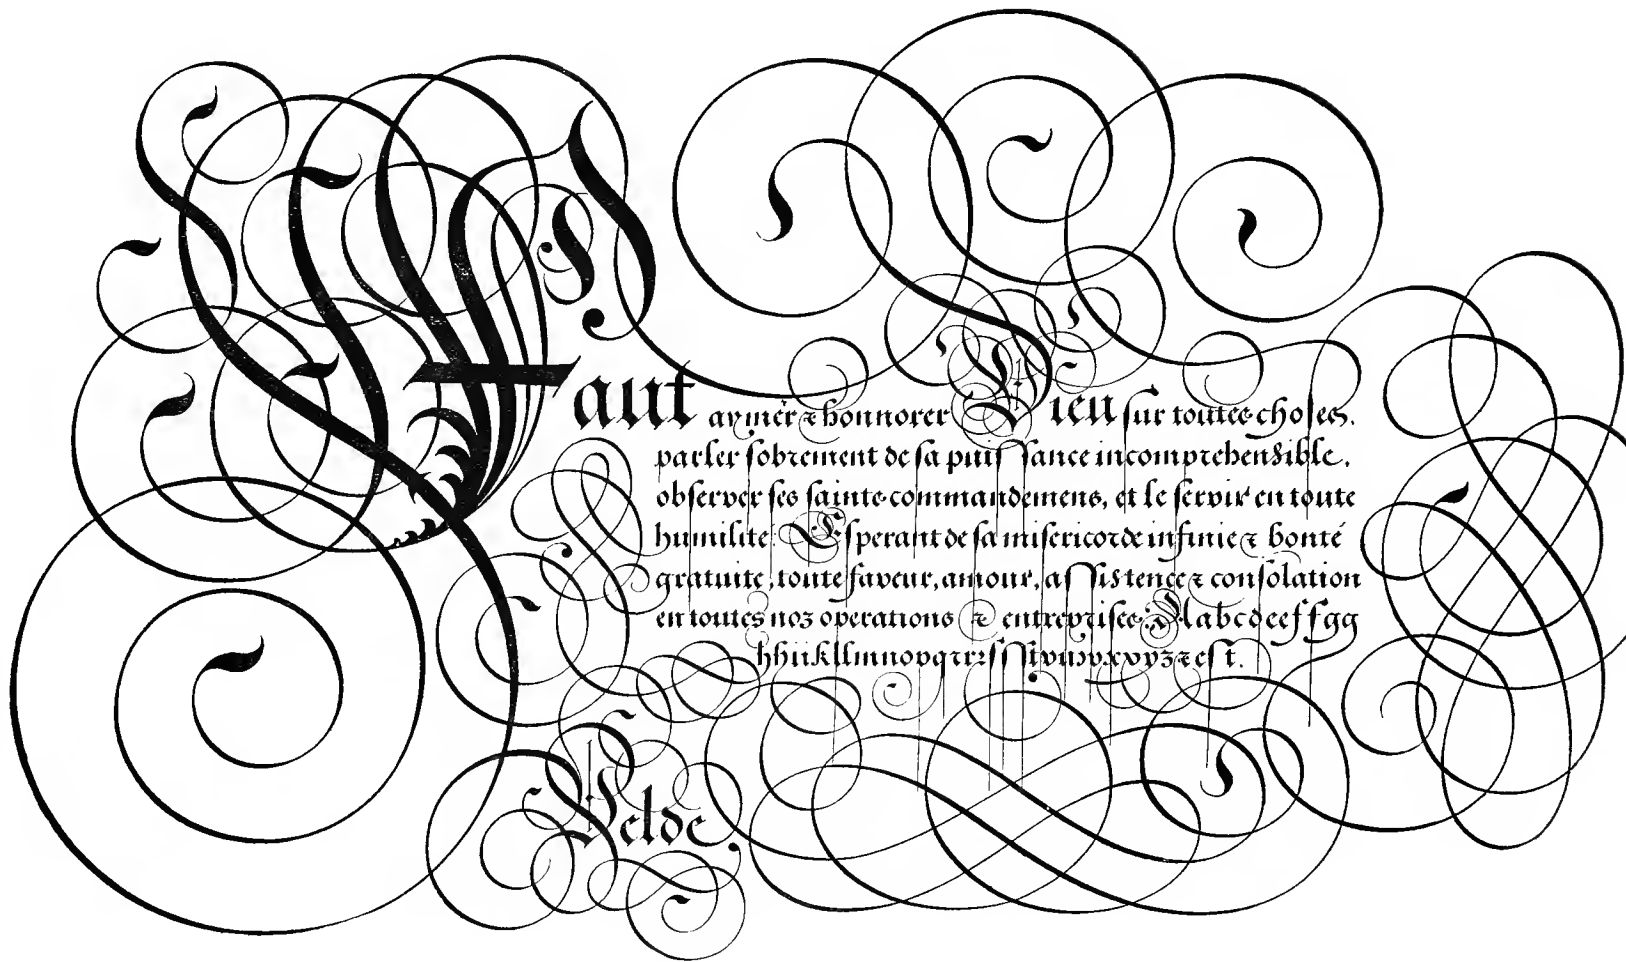 Faut aymer & honnorer Dieu sur toutes choses.
parler sobrement de sa puissance incomprehensible.
observer ses saints commandemens, et le servir en toute
humilite: Esperant de sa misericorde infinie & bonté
gratuite, toute faveur, amour, assistence & consolation
en toutes noz operations & entreprises. A a b c d e e f f g g
h h i i k l l m n o p q r r r s s st v u w x x y y z & est.
Velde.